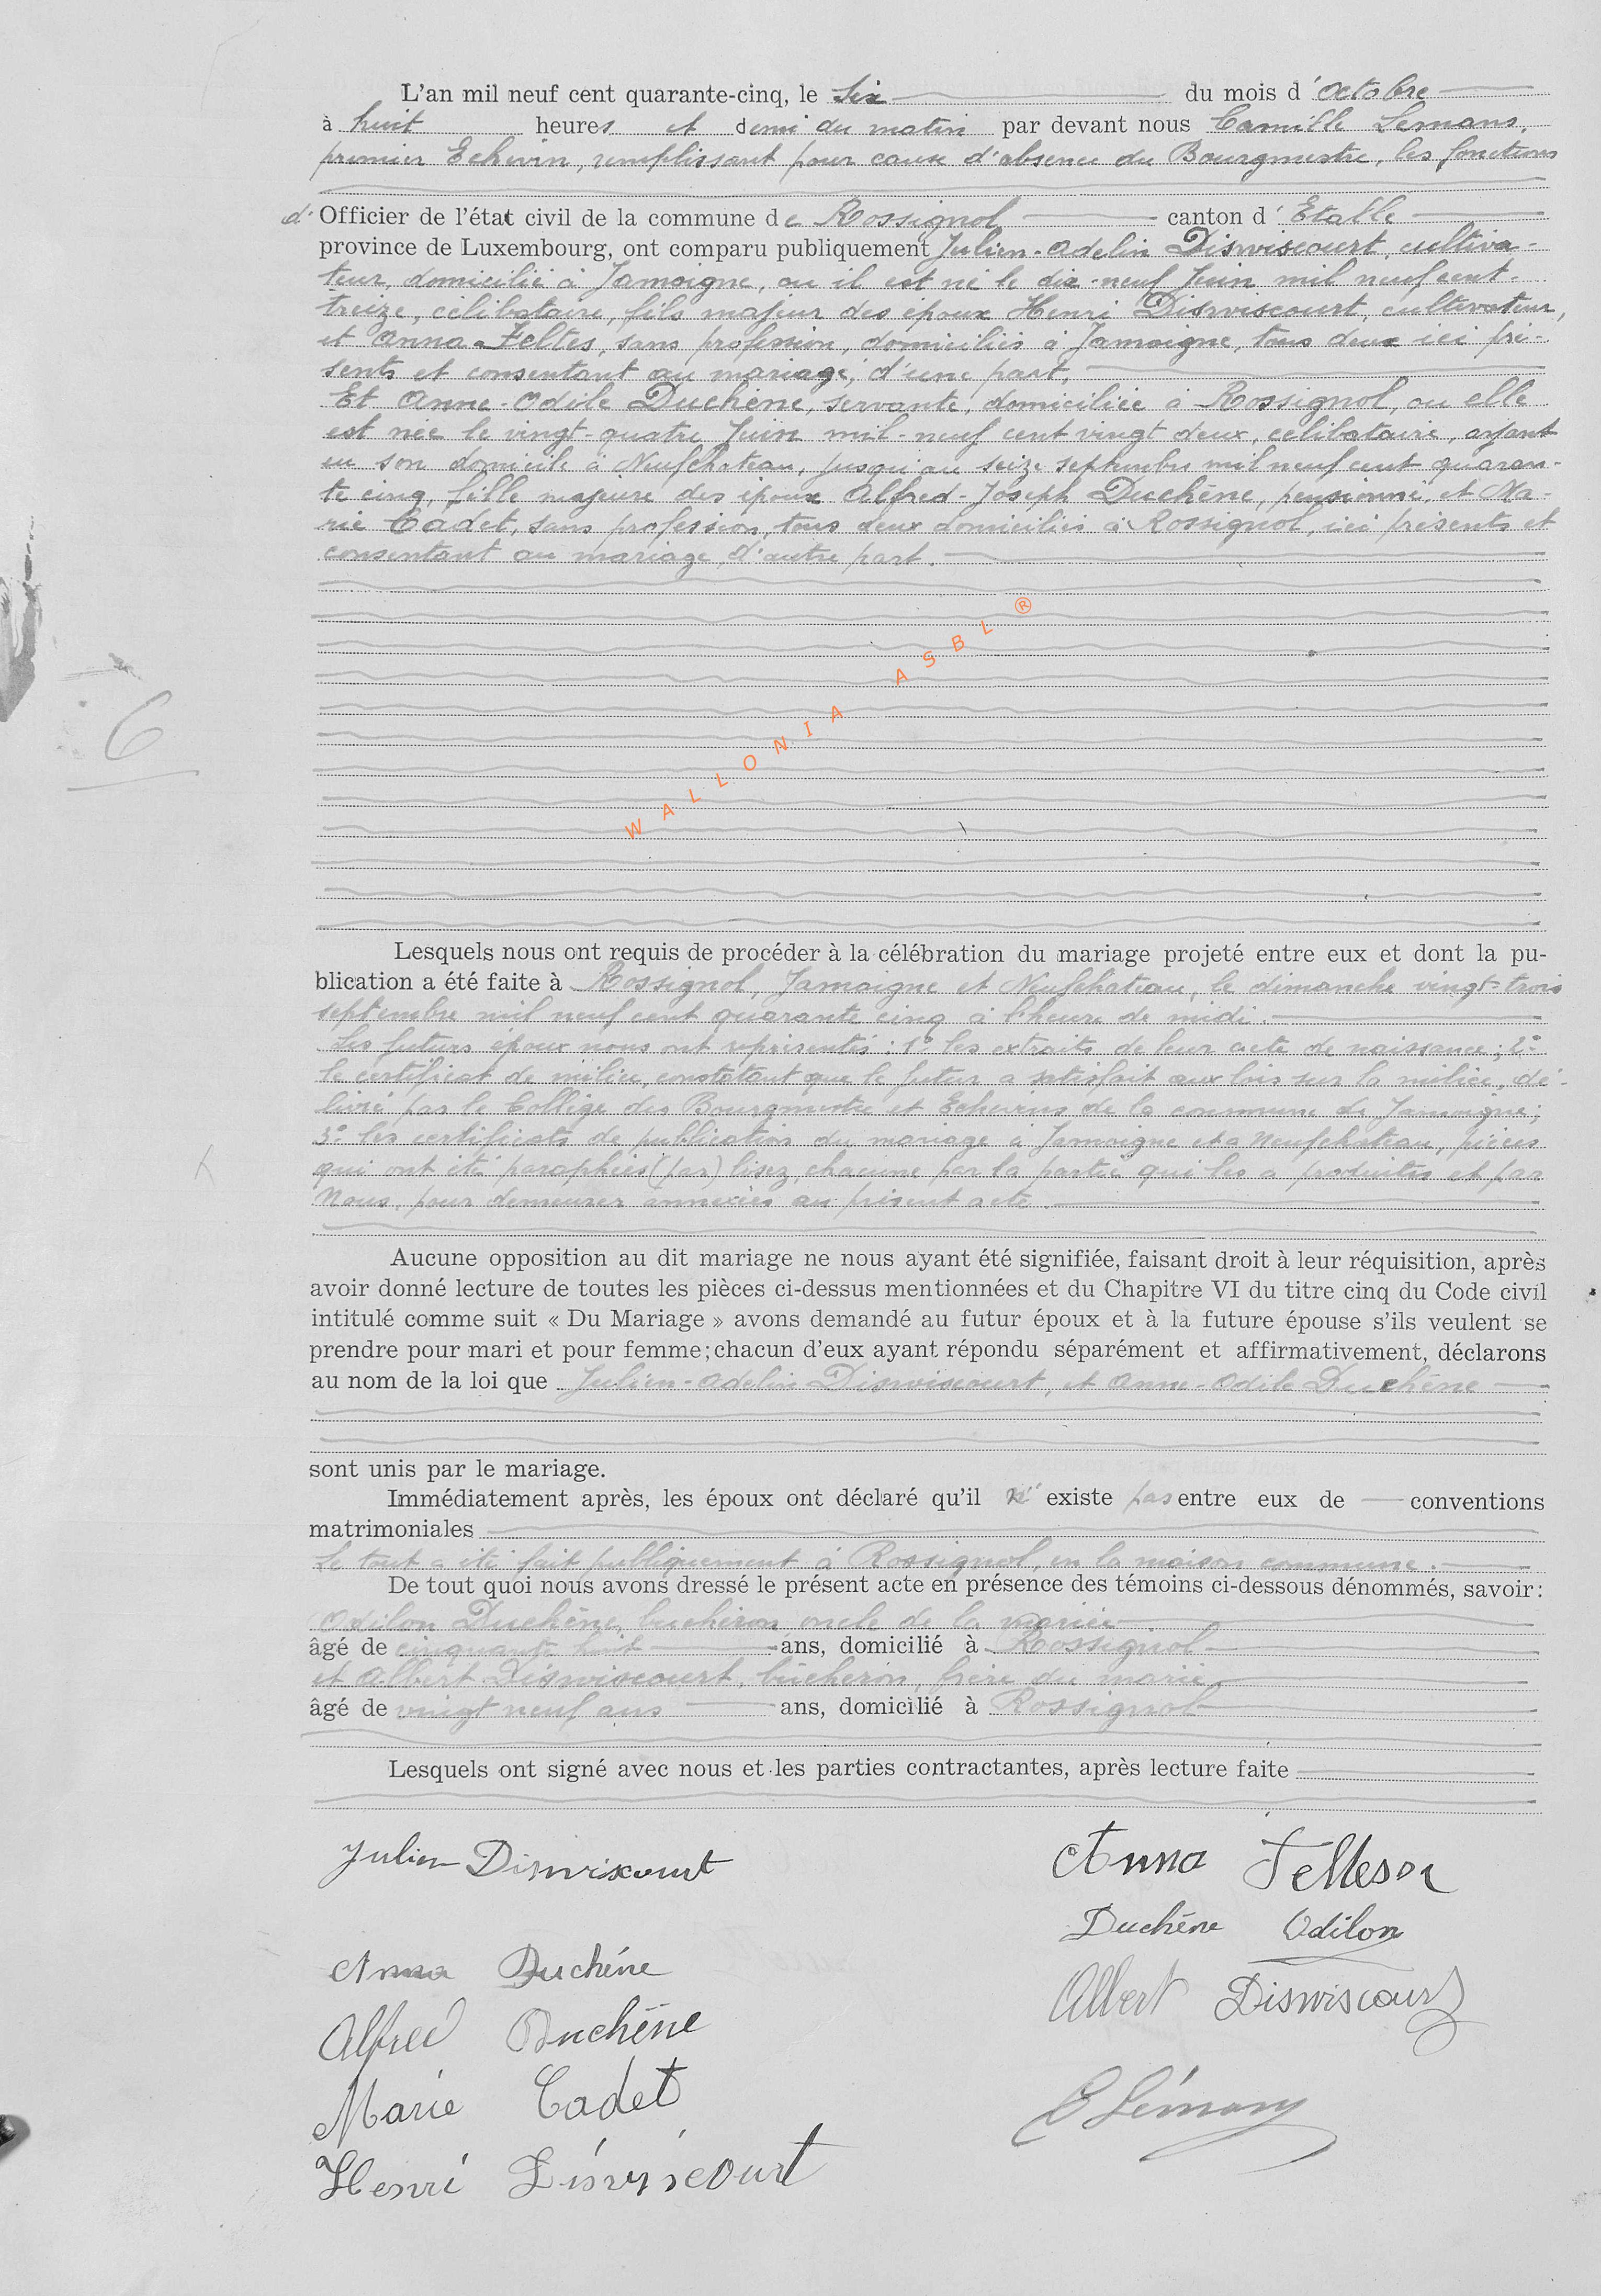 L'an mil neuf cent quarante-cinq, le six du mois d'Octobre
à huit heures et demi du matin par devant nous Camille Lemans,
premier Echevin, remplissant pour cause d'absence du Bourgmestre, les fonctions
d'Officier de l'état civil de la commune de Rossignol canton d'Etalle
province de Luxembourg, ont comparu publiquement Julien-Adelin Diswiscourt, cultiva-
teur, domicilié à Jamoigne, ou il est né le dix-neuf Juin mil neuf cent-
treize, célibataire, fils majeur des époux Henri Diswiscourt, cultivateur,
et Anna Feltes, sans profession, domiciliés à Jamoigne, tous deux ici pré-
sents et consentant au mariage, d'une part,
Et Anne-Odile Duchêne, servante, domiciliée à Rossignol, ou elle
est née le vingt-quatre Juin mil-neuf cent vingt deux, célibataire, ayant
eu son domicile à Neufchateau, jusqu'au seize septembre mil neuf cent quaran-
te cinq, fille majeure des époux Alfred-Joseph Duchêne, pensionné, et Ma-
rie Cadet, sans profession, tous deux domiciliés à Rossignol, ici présents et
consentant au mariage, d'autre part.
WALLONIA ASBL ®
6
Lesquels nous ont requis de procéder à la célébration du mariage projeté entre eux et dont la pu-
blication a été faite à Rossignol, Jamoigne et Neufchateau, le dimanche vingt-trois
septembre mil neuf cent quarante cinq à l'heure de midi.
Les futurs époux nous ont représentés : 1° les extraits de leur acte de naissance ; 2°
le certificat de milice, constatant que le futur a satisfait aux lois sur la milice, dé-
livré par le Collège des Bourgmestre et Echevins de la commune de Jamoigne ;
3° les certificats de publication du mariage à Jamoigne et à Neufchateau, pièces
qui ont été paraphées (par) lisez, chacune par la partie qui les a produites et par
Nous, pour demeurer annexées au présent acte.
Aucune opposition au dit mariage ne nous ayant été signifiée, faisant droit à leur réquisition, après
avoir donné lecture de toutes les pièces ci-dessus mentionnées et du Chapitre VI du titre cinq du Code civil
intitulé comme suit « Du Mariage » avons demandé au futur époux et à la future épouse s'ils veulent se
prendre pour mari et pour femme; chacun d'eux ayant répondu séparément et affirmativement, déclarons
au nom de la loi que Julien-Adelin Diswiscourt, et Anne-Odile Duchêne
sont unis par le mariage.
Immédiatement après, les époux ont déclaré qu'il n'existe pas entre eux de conventions
matrimoniales
Le tout a été fait publiquement à Rossignol, en la maison commune.
De tout quoi nous avons dressé le présent acte en présence des témoins ci-dessous dénommés, savoir :
Odilon Duchêne, bucheron, oncle de la mariée
âgé de cinquante huit ans, domicilié à Rossignol
et Albert Diswiscourt, bûcheron, frère du marié
âgé de vingt neuf ans ans, domicilié à Rossignol
Lesquels ont signé avec nous et les parties contractantes, après lecture faite
Julien Diswiscourt
Anna
Duchêne Odilon
Anna Duchêne
Albert Diswiscourt
Alfred Duchêne
Marie Cadet
Henri Diswiscourt